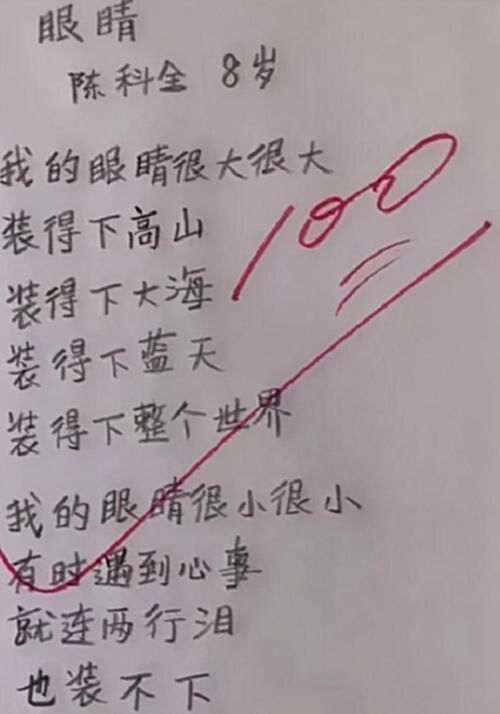 眼睛
陈科全 8岁
我的眼睛很大很大
装得下高山
装得下大海
装得下蓝天
装得下整个世界
我的眼睛很小很小
有时遇到心事
就连两行泪
也装不下
100